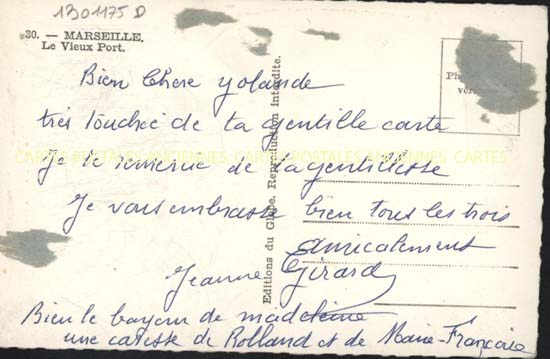 1301175 D
30. — MARSEILLE.
Le Vieux Port.
Bien Chère Yolande
très touchée de ta gentille carte
Je te remercie de ta gentillesse
Je vous embrasse bien tous les trois
amicalement
Jeanne Girard
Bien le bonjour de madeleine
une caresse de Rolland et de Marie-Françoise
Editions du Globe. Reproduction interdite.
CARTES POSTALES ANCIENNES CARTES POSTALES ANCIENNES CARTES